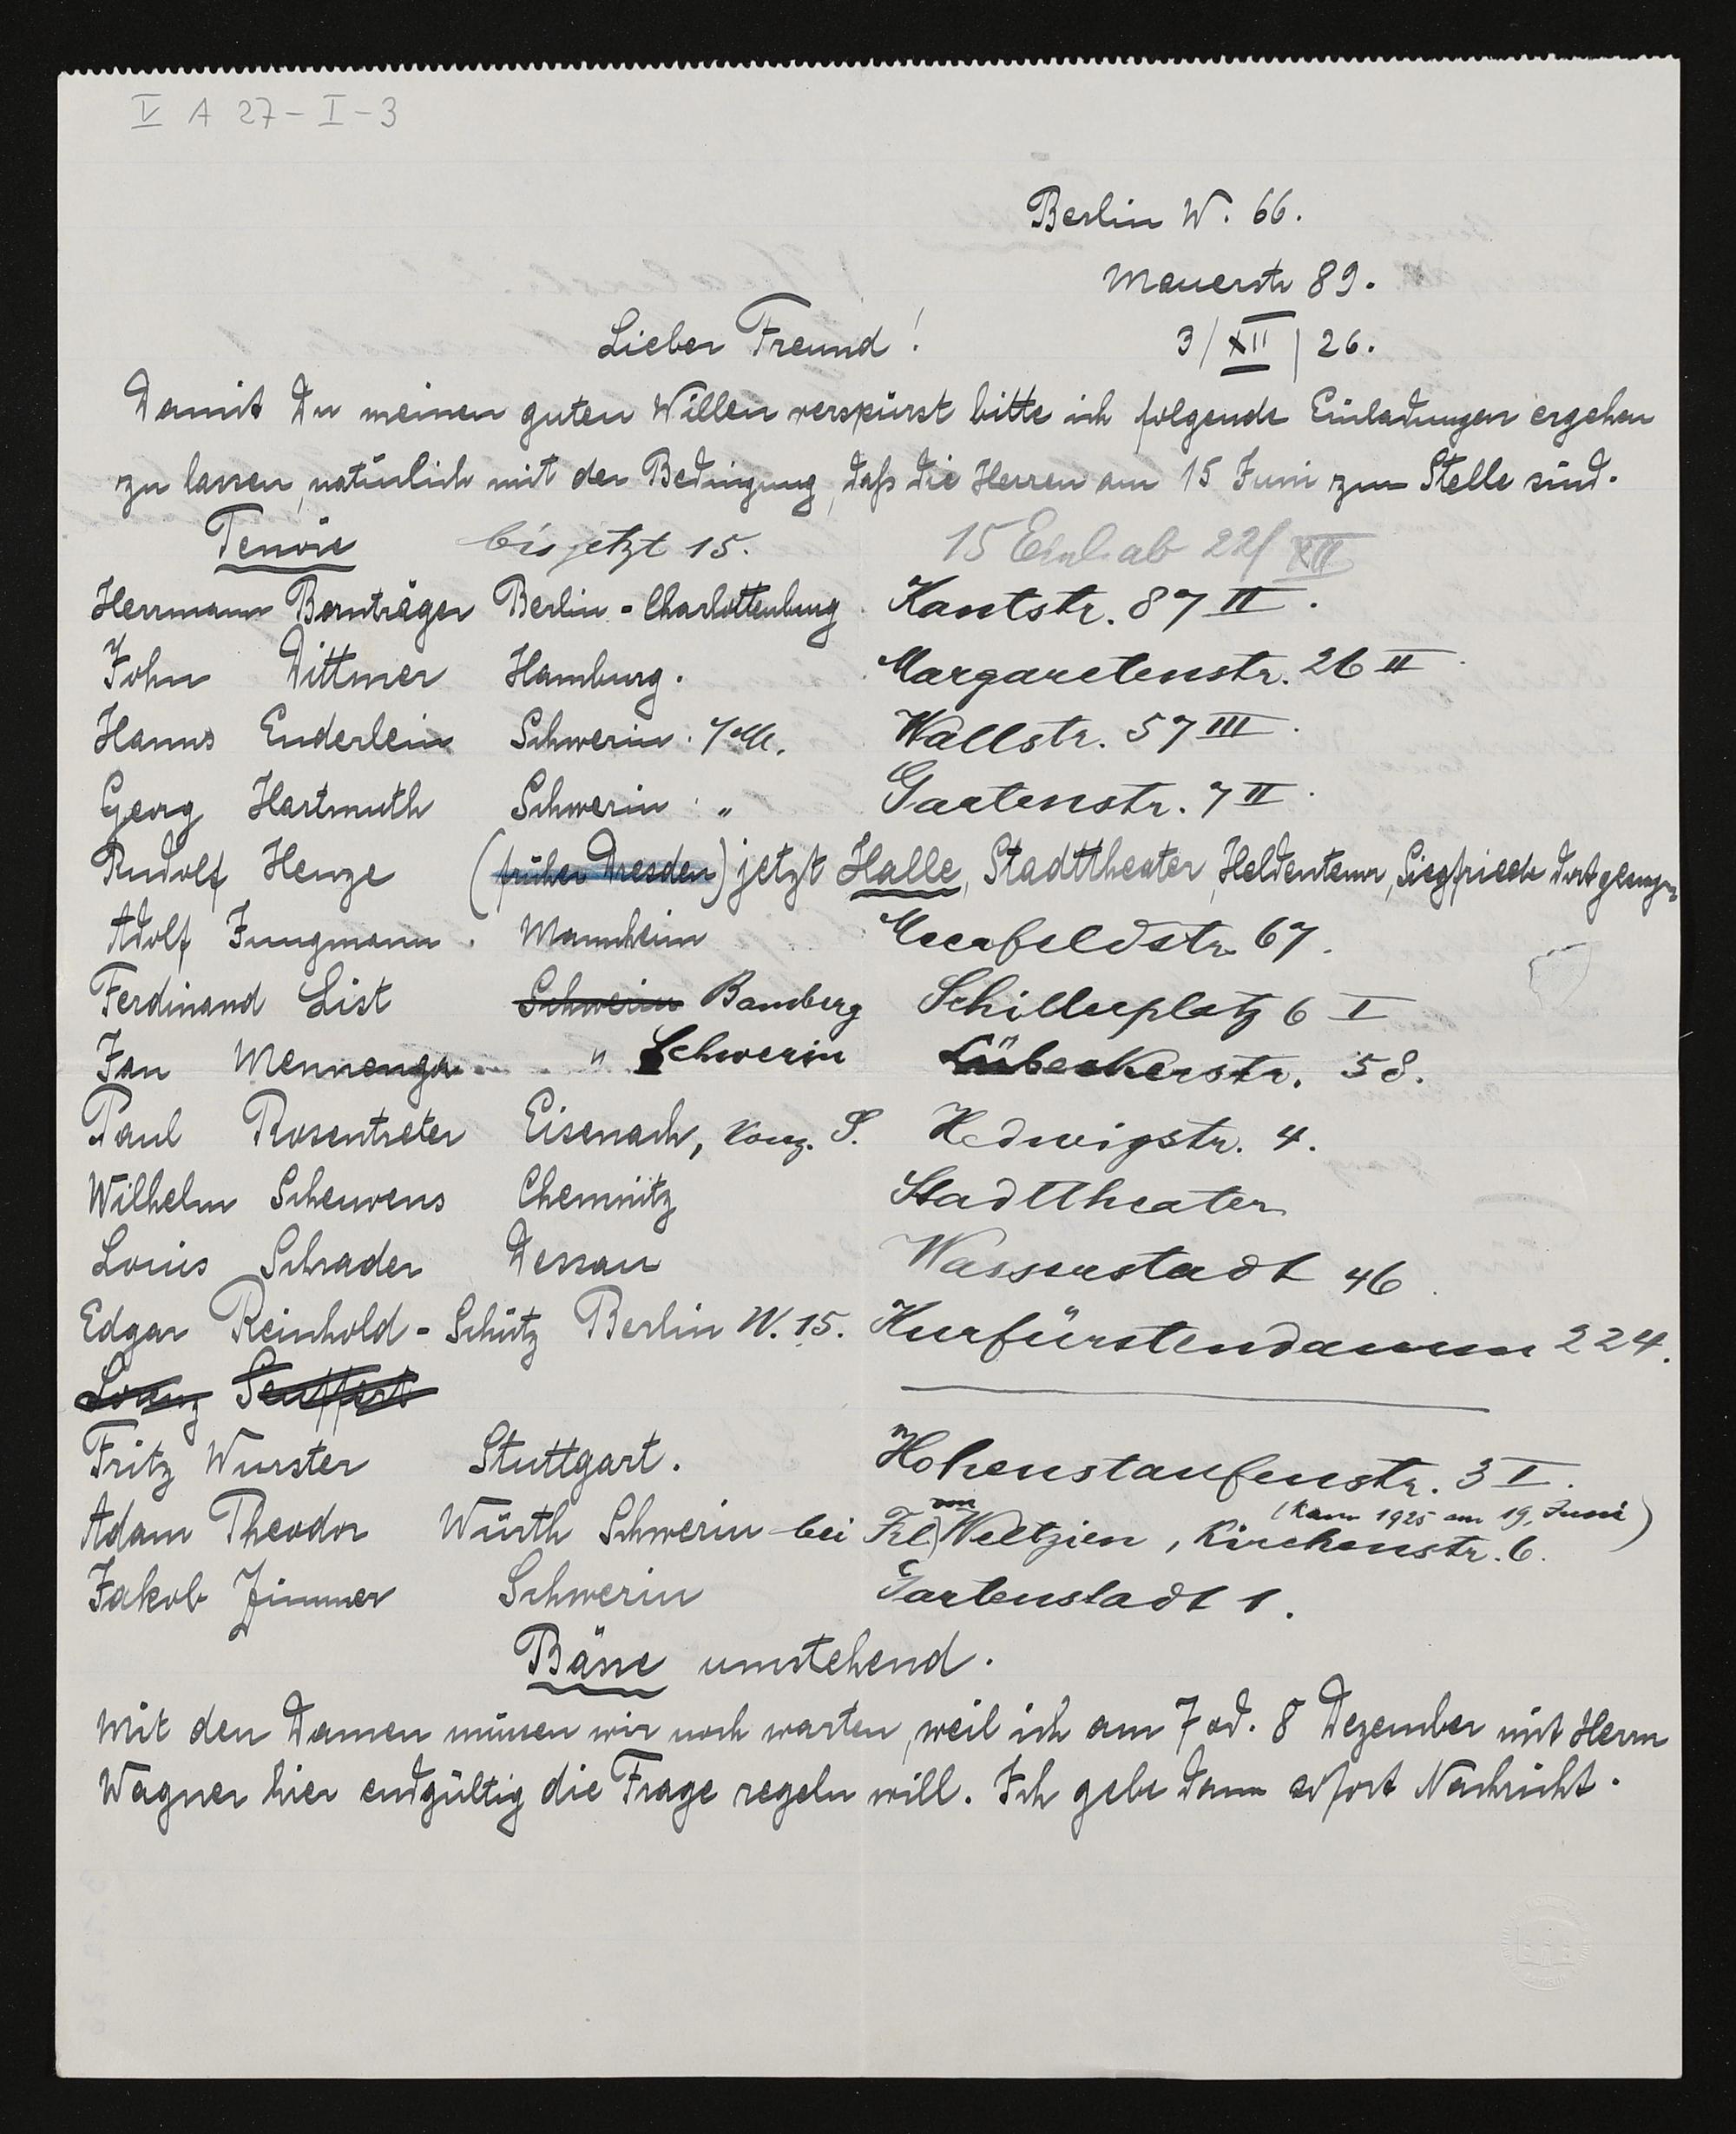 V A 27 - I - 3
Berlin W. 66.
Mauerstr 89.
Lieber Freund! 3/XII/26.
Damit Du meinen guten Willen verspürst bitte ich folgende Einladungen ergehen
zu lassen, natürlich mit der Bedingung, daß die Herren am 15 Juni zur Stelle sind.
Tenöre bis jetzt 15. 15 Einl. ab 22/XII
Herrmann Bornträger Berlin-Charlottenburg Kantstr. 87 II.
John Dittmer Hamburg. Margaretenstr. 26 II
Hanns Enderlein Schwerin. i/M. Wallstr. 57 III.
Georg Hartmuth Schwerin „ Gartenstr. 7 II.
Rudolf Henze (früher Dresden) jetzt Halle, Stadttheater, Heldentenor, Siegfriede dort gesungen
Adolf Jungmann. Mannheim Meerfeldstr 67.
Ferdinand List Schwerin Bamberg Schillerplatz 6 I
Jan Mennenga " Schwerin Lübeckerstr. 58.
Paul Rosentreter Eisenach, Konz. S. Hedwigstr. 4.
Wilhelm Scheuvens Chemnitz Stadttheater
Louis Schrader Dessau Wasserstadt 46.
Edgar Reinhold-Schütz Berlin W. 15. Kurfürstendamm 224.
Seuffert
Fritz Wurster Stuttgart. Hohenstaufenstr. 3 I.
(kam 1925 am 19. Juni)
Adam Theodor Würth Schwerin bei Frl von Weltzien, Kirchenstr. 6.
Jakob Zimmer Schwerin Gartenstadt 1.
Bässe umstehend.
Mit den Damen müssen wir noch warten, weil ich am 7 od. 8 Dezember mit Herrn
Wagner hier endgültig die Frage regeln will. Ich gebe dann sofort Nachricht.